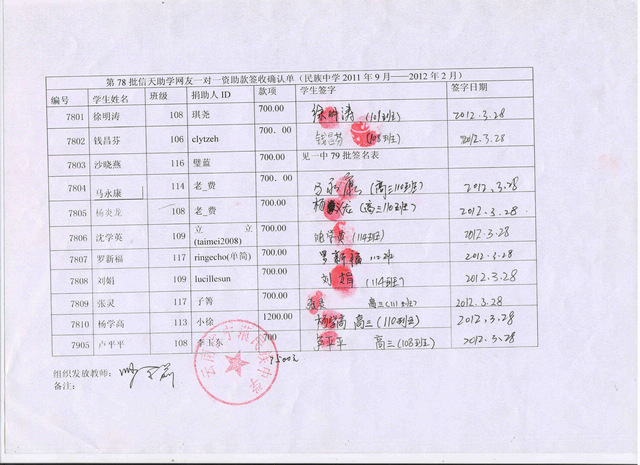 第 78 批信天助学网友一对一资助款签收确认单（民族中学 2011 年 9 月——2012 年 2 月）
编号 学生姓名 班级 捐助人 ID 款项 学生签字 签字日期
7801 徐明涛 108 琪尧 700.00 徐明涛 (109班) 2012.3.28
7802 钱昌芬 106 clytzeh 700.00 钱昌芬 (108班) 2012.3.28
7803 沙晓燕 116 璧蓝 700.00 见一中 79 批签名表
7804 马永康 114 老_费 700.00 马永康 (高三110班) 2012.3.28
7805 杨炎龙 108 老_费 700.00 杨炎龙 (高三110班) 2012.3.28
7806 沈学英 109 立立 (taimei2008) 700.00 沈学英 (114班) 2012.3.28
7807 罗新福 117 ringecho(单简) 700.00 罗新福 112班 2012.3.28
7808 刘娟 109 lucillesun 700.00 刘娟 (114班) 2012.3.28
7809 张灵 117 于箐 700.00 张灵 高三(111班) 2012.3.28
7810 杨学高 113 小徐 1200.00 杨学高 高三(110班) 2012.3.28
7905 卢平平 108 李玉东 700 卢平平 高三(108班) 2012.3.28
7500元
组织发放教师：
备注：